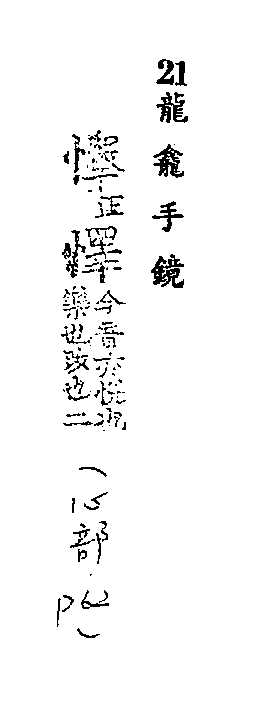 21龍龕手鏡
正懌今音亦悅也
樂也改也二
(心部 P62)